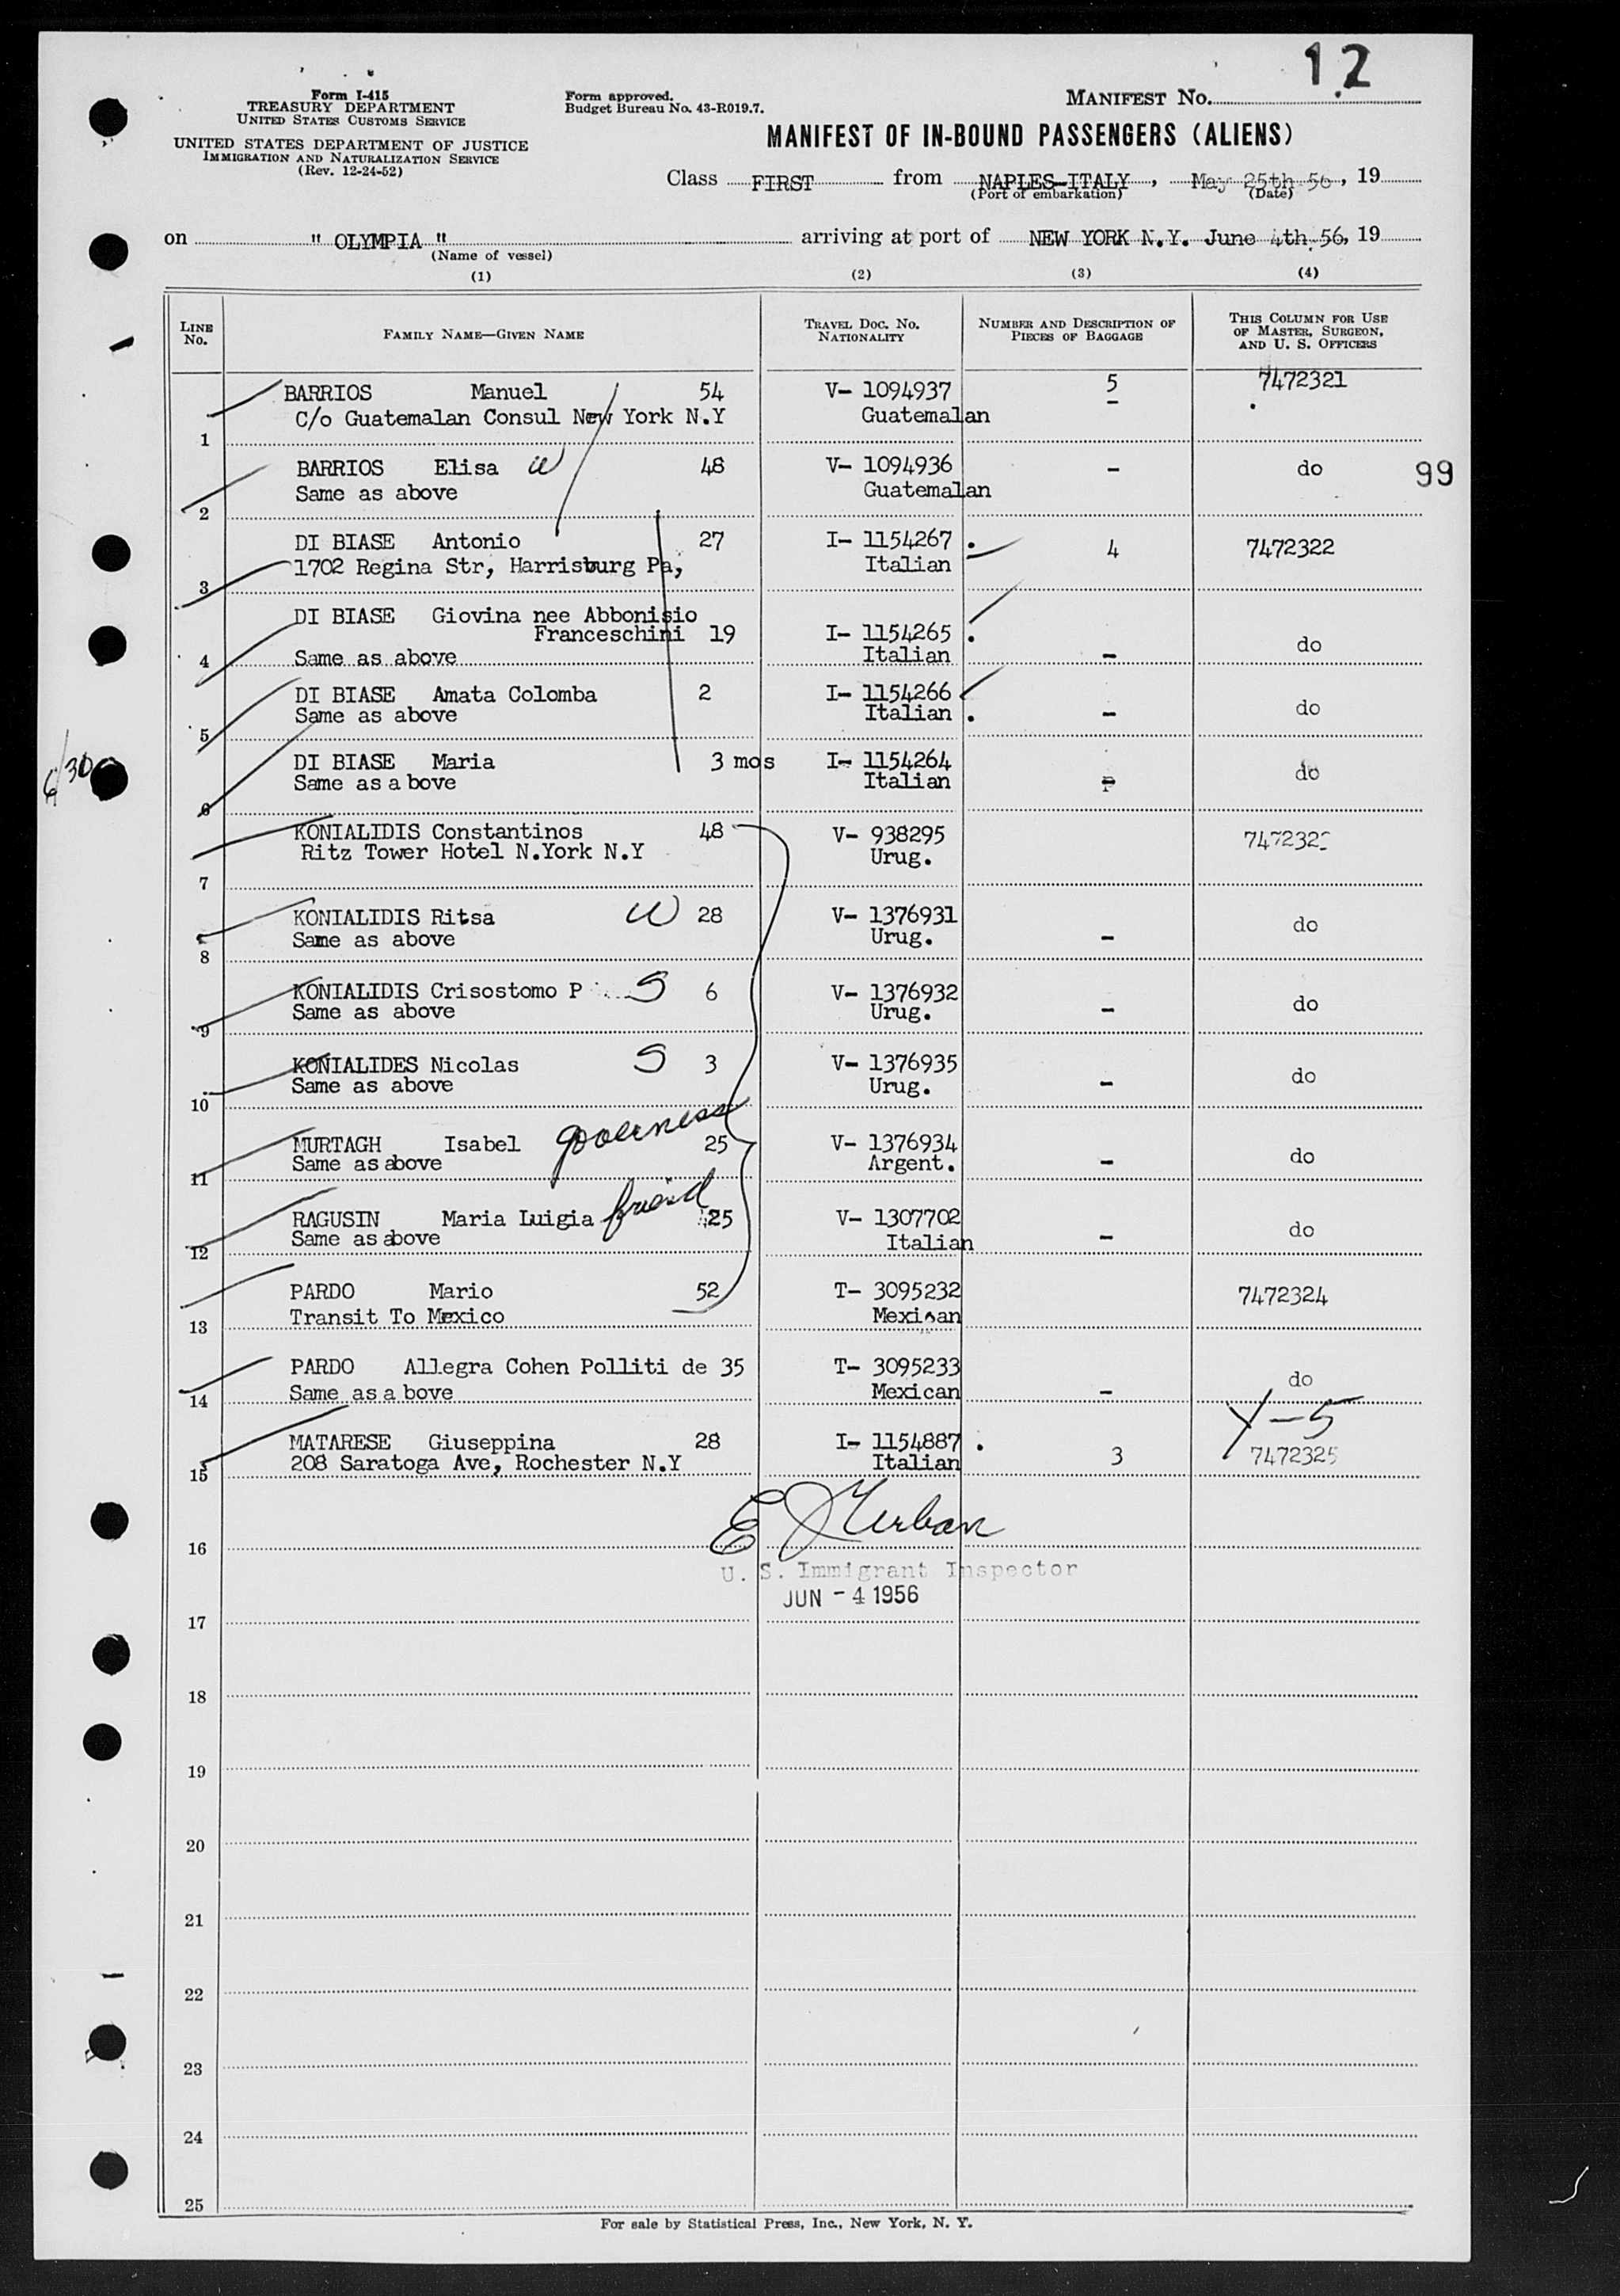 12
Form I-415
TREASURY DEPARTMENT
UNITED STATES CUSTOMS SERVICE
UNITED STATES DEPARTMENT OF JUSTICE
IMMIGRATION AND NATURALIZATION SERVICE
(Rev. 12-24-52)
Form approved.
Budget Bureau No. 43-R019.7.
MANIFEST No.
MANIFEST OF IN-BOUND PASSENGERS (ALIENS)
Class FIRST from NAPLES-ITALY, May 25th 56, 19
(Port of embarkation) (Date)
on " OLYMPIA " arriving at port of NEW YORK N.Y. June 4th, 56, 19
(Name of vessel)
(1) (2) (3) (4)
LINE No. FAMILY NAME—GIVEN NAME TRAVEL DOC. No. NATIONALITY NUMBER AND DESCRIPTION OF PIECES OF BAGGAGE THIS COLUMN FOR USE OF MASTER, SURGEON, AND U. S. OFFICERS
BARRIOS Manuel 54 V- 1094937 5 7472321
C/o Guatemalan Consul New York N.Y Guatemalan -
1
BARRIOS Elisa W 48 V- 1094936 - do 99
Same as above Guatemalan
2
DI BIASE Antonio 27 I- 1154267 4 7472322
1702 Regina Str, Harrisburg Pa, Italian
3
DI BIASE Giovina nee Abbonisio
Franceschini 19 I- 1154265 do
4 Same as above Italian -
DI BIASE Amata Colomba 2 I- 1154266 do
Same as above Italian -
5
DI BIASE Maria 3 mos I- 1154264 do
Same as a bove Italian
6
6/30
KONIALIDIS Constantinos 48 V- 938295
Ritz Tower Hotel N.York N.Y Urug.
7
KONIALIDIS Ritsa W 28 V- 1376931 do
Same as above Urug. -
8
KONIALIDIS Crisostomo P S 6 V- 1376932 do
Same as above Urug. -
9
KONIALIDES Nicolas S 3 V- 1376935 do
Same as above Urug. -
10
MURTAGH Isabel governess 25 V- 1376934 do
Same as above Argent. -
11
RAGUSIN Maria Luigia friend 25 V- 1307702 do
Same as above Italian -
12
PARDO Mario 52 T- 3095232 7472324
Transit To Mexico Mexican
13
PARDO Allegra Cohen Polliti de 35 T- 3095233 do
Same as a bove Mexican -
14
Y-5
MATARESE Giuseppina 28 I- 1154887 3 7472325
208 Saratoga Ave, Rochester N.Y Italian
15
16
U. S. Immigrant Inspector
JUN - 4 1956
17
18
19
20
21
22
23
24
25
For sale by Statistical Press, Inc., New York, N. Y.